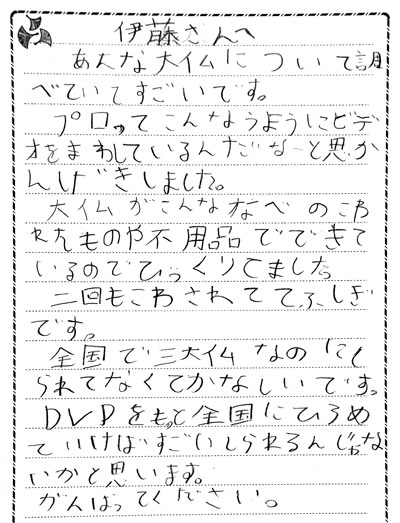 伊藤さんへ
あんな大仏について調
べていてすごいです。
プロってこんなうようにビデ
オをまわしているんだなーと思か
んげきしました。
大仏がこんななべのこわ
れたものや不用品でできて
いるのでびっくりしました
二回もこわされててふしぎ
です。
全国で三大仏なのにし
られてなくてかなしいです。
DVDをもっと全国にひろめ
ていけばすごいしられるんじゃな
いかと思います。
がんばってください。